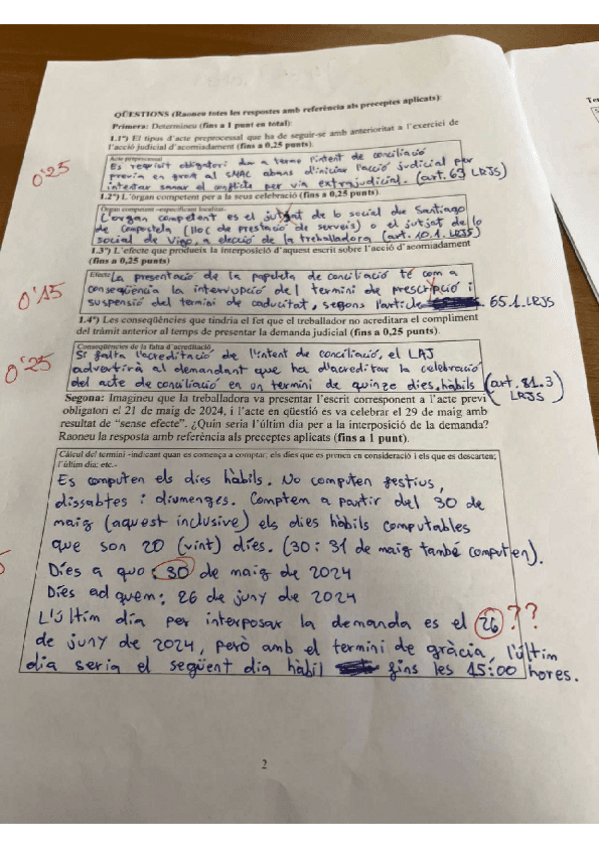 QÜESTIONS (Raoneu totes les respostes amb referència als preceptes aplicats):
Primera: Determineu (fins a 1 punt en total):
1.1ª) El tipus d'acte preprocessal que ha de seguir-se amb anterioritat a l'exercici de
l'acció judicial d'acomiadament (fins a 0,25 punts).
Acte preprocessal
Es requisit obligatori dur a terme l'intent de conciliació
previa en grau al CMAC abans d'iniciar l'acció judicial per
intentar sanar el conflicte per via extrajudicial. (art. 63 LRJS)
0'25
1.2ª) L'òrgan competent per a la seus celebració (fins a 0,25 punts).
Òrgan competent -especificant localitat-
L'organ competent es el jutjat de lo social de Santiago
de Compostela (lloc de prestació de serveis) o el jutjat de lo
social de Vigo, a elecció de la treballadora (art. 10.1. LRJS)
1.3ª) L'efecte que produeix la interposició d'aquest escrit sobre l'acció d'acomiadament
(fins a 0,25 punts)
Efecte
La presentació de la papeleta de conciliació té com a
conseqüència la interrupció del termini de prescripció i
suspensió del termini de caducitat, segons l'article 65.1. LRJS
0'15
1.4ª) Les conseqüències que tindria el fet que el treballador no acreditara el compliment
del tràmit anterior al temps de presentar la demanda judicial (fins a 0,25 punts).
Conseqüències de la falta d'acreditació
Si falta l'acreditació de l'intent de conciliació, el LAJ
advertirà al demandant que ha d'acreditar la celebració
del acte de conciliació en un termini de quinze dies hàbils (art. 81.3
LRJS)
0'25
Segona: Imagineu que la treballadora va presentar l'escrit corresponent a l'acte previ
obligatori el 21 de maig de 2024, i l'acte en qüestió es va celebrar el 29 de maig amb
resultat de "sense efecte". ¿Quin seria l'últim dia per a la interposició de la demanda?
Raoneu la resposta amb referència als preceptes aplicats (fins a 1 punt).
Càlcul del termini -indicant quan es comença a comptar; els dies que es prenen en consideració i els que es descarten;
l'últim dia; etc.-
Es computen els dies hàbils. No computen festius,
dissabtes i diumenges. Comptem a partir del 30 de
maig (aquest inclusive) els dies hàbils computables
que son 20 (vint) dies. (30 i 31 de maig també computen).
Dies a quo: 30 de maig de 2024
Dies ad quem: 26 de juny de 2024
L'últim dia per interposar la demanda es el 26 ??
de juny de 2024, però amb el termini de gràcia, l'últim
dia seria el següent dia hàbil fins les 15:00 hores.
2